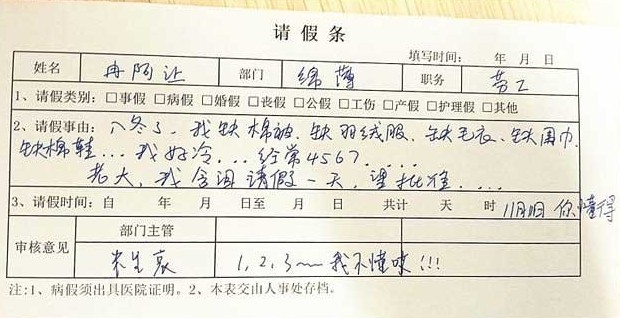 请假条
填写时间： 年 月 日
姓名 冉阿让 部门 绵薄 职务 劳工
1、请假类别：□事假 □病假 □婚假 □丧假 □公假 □工伤 □产假 □护理假 □其他
2、请假事由：入冬了，我缺棉被、缺羽绒服、缺毛衣、缺围巾、
缺棉鞋...我好冷...经常4567....
老大，我含泪请假一天，望批准....
3、请假时间：自 年 月 日至 月 日 共计 天 时 11月11日 你懂得
审核意见 部门主管
米生哀 1,2,3~~我不懂哎!!!
注:1、病假须出具医院证明。2、本表交由人事处存档。